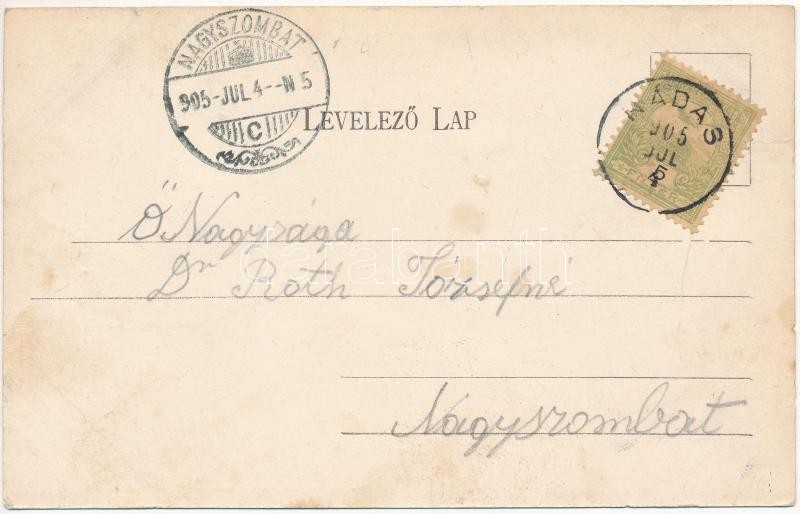 NAGYSZOMBAT
905-JUL 4--N 5
C
LEVELEZŐ LAP
NÁDAS
905
JUL
Ő Nagysága
Dr Roth Józsefné
Nagyszombat
darabanth